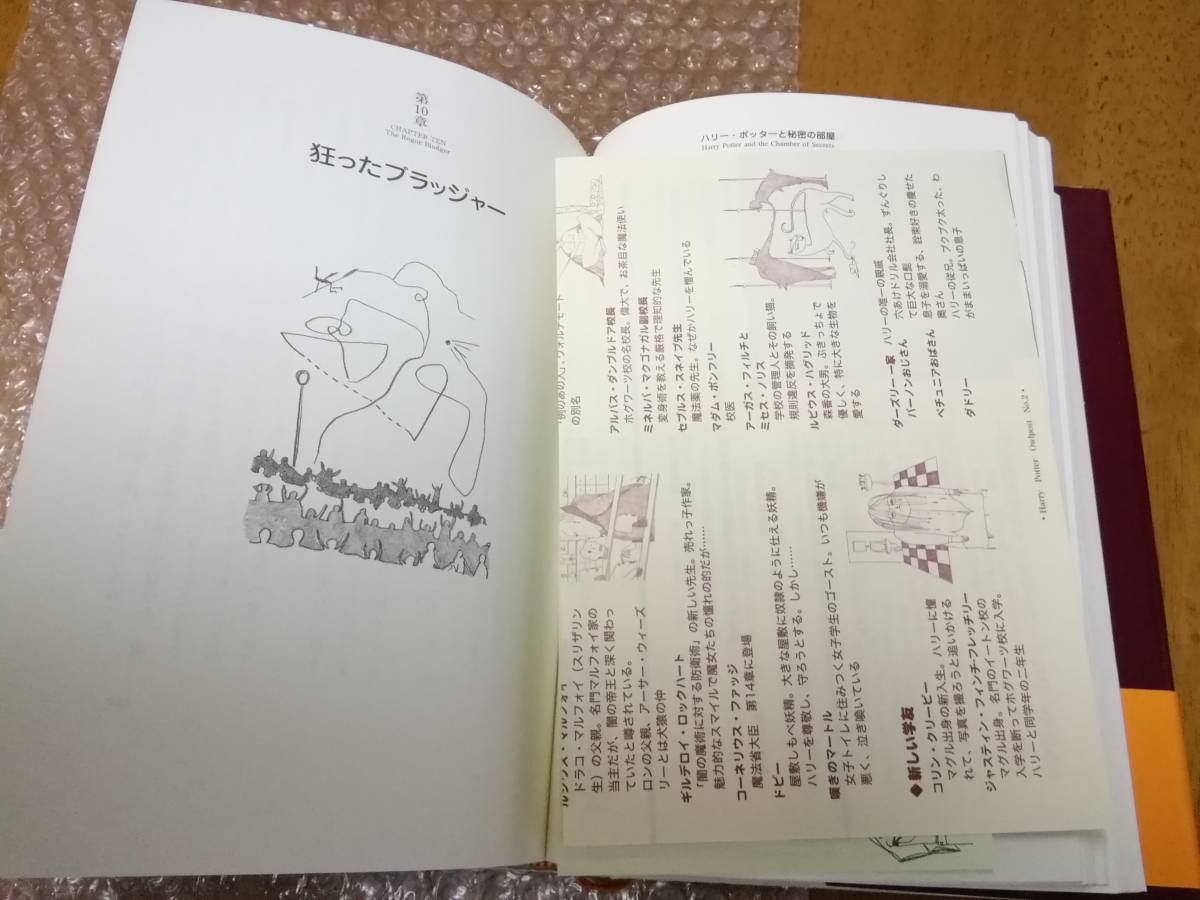 第10章
CHAPTER TEN
The Rogue Bludger
狂ったブラッジャー
ハリー・ポッターと秘密の部屋
Harry Potter and the Chamber of Secrets
「例のあの人」、ヴォルデモート
の別名
アルバス・ダンブルドア校長
ホグワーツ校の名校長。偉大で、お茶目な魔法使い
ミネルバ・マクゴナガル副校長
変身術を教える厳格で理知的な先生
セブルス・スネイプ先生
魔法薬の先生。なぜかハリーを憎んでいる
マダム・ポンフリー
校医
アーガス・フィルチと
ミセス・ノリス
学校の管理人とその飼い猫。
規則違反を摘発する
ルビウス・ハグリッド
森番の大男。ぶきっちょで
優しく、特に大きな生物を
愛する
ダーズリー一家　ハリーの唯一の親戚
バーノンおじさん　穴あけドリル会社社長。ずんぐりし
て巨大な口髭
ペチュニアおばさん　息子を溺愛する、詮索好きの痩せた
奥さん
ダドリー　ハリーの従兄。ブクブク太った、わ
がままいっぱいの息子
ルシウス・マルフォイ
ドラコ・マルフォイ（スリザリン
生）の父親。名門マルフォイ家の
当主だが、闇の帝王と深く関わっ
ていたと噂されている。
ロンの父親、アーサー・ウィーズ
リーとは犬猿の仲
ギルデロイ・ロックハート
「闇の魔術に対する防衛術」の新しい先生。売れっ子作家。
魅力的なスマイルで魔女たちの憧れの的だが……
コーネリウス・ファッジ
魔法省大臣　第14章に登場
ドビー
屋敷しもべ妖精。大きな屋敷に奴隷のように仕える妖精。
ハリーを尊敬し、守ろうとする。しかし……
嘆きのマートル
女子トイレに住みつく女子学生のゴースト。いつも機嫌が
悪く、泣き喚いている
◆新しい学友
コリン・クリービー
マグル出身の新入生。ハリーに憧
れて、写真を撮ろうと追いかける
ジャスティン・フィンチ-フレッチリー
マグル出身。名門のイートン校の
入学を断ってホグワーツ校に入学。
ハリーと同学年の二年生
・Harry Potter Owlpost No.2・